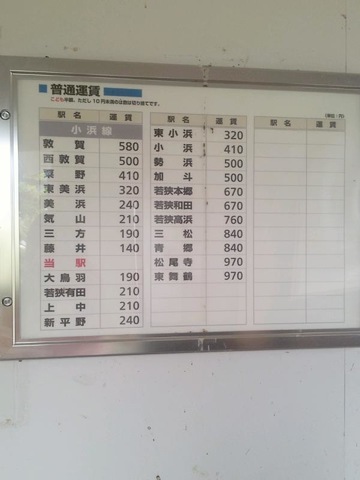 普通運賃
こども半額。ただし10円未満の は切り捨てです。
(単位:円)
駅名 運賃
小浜線
敦賀 580
西敦賀 500
粟野 410
東美浜 320
美浜 240
気山 210
三方 190
藤井 140
当駅
大鳥羽 190
若狭有田 210
上中 210
新平野 240
駅名 運賃
東小浜 320
小浜 410
勢浜 500
加斗 500
若狭本郷 670
若狭和田 670
若狭高浜 760
三松 840
青郷 840
松尾寺 970
東舞鶴 970
駅名 運賃